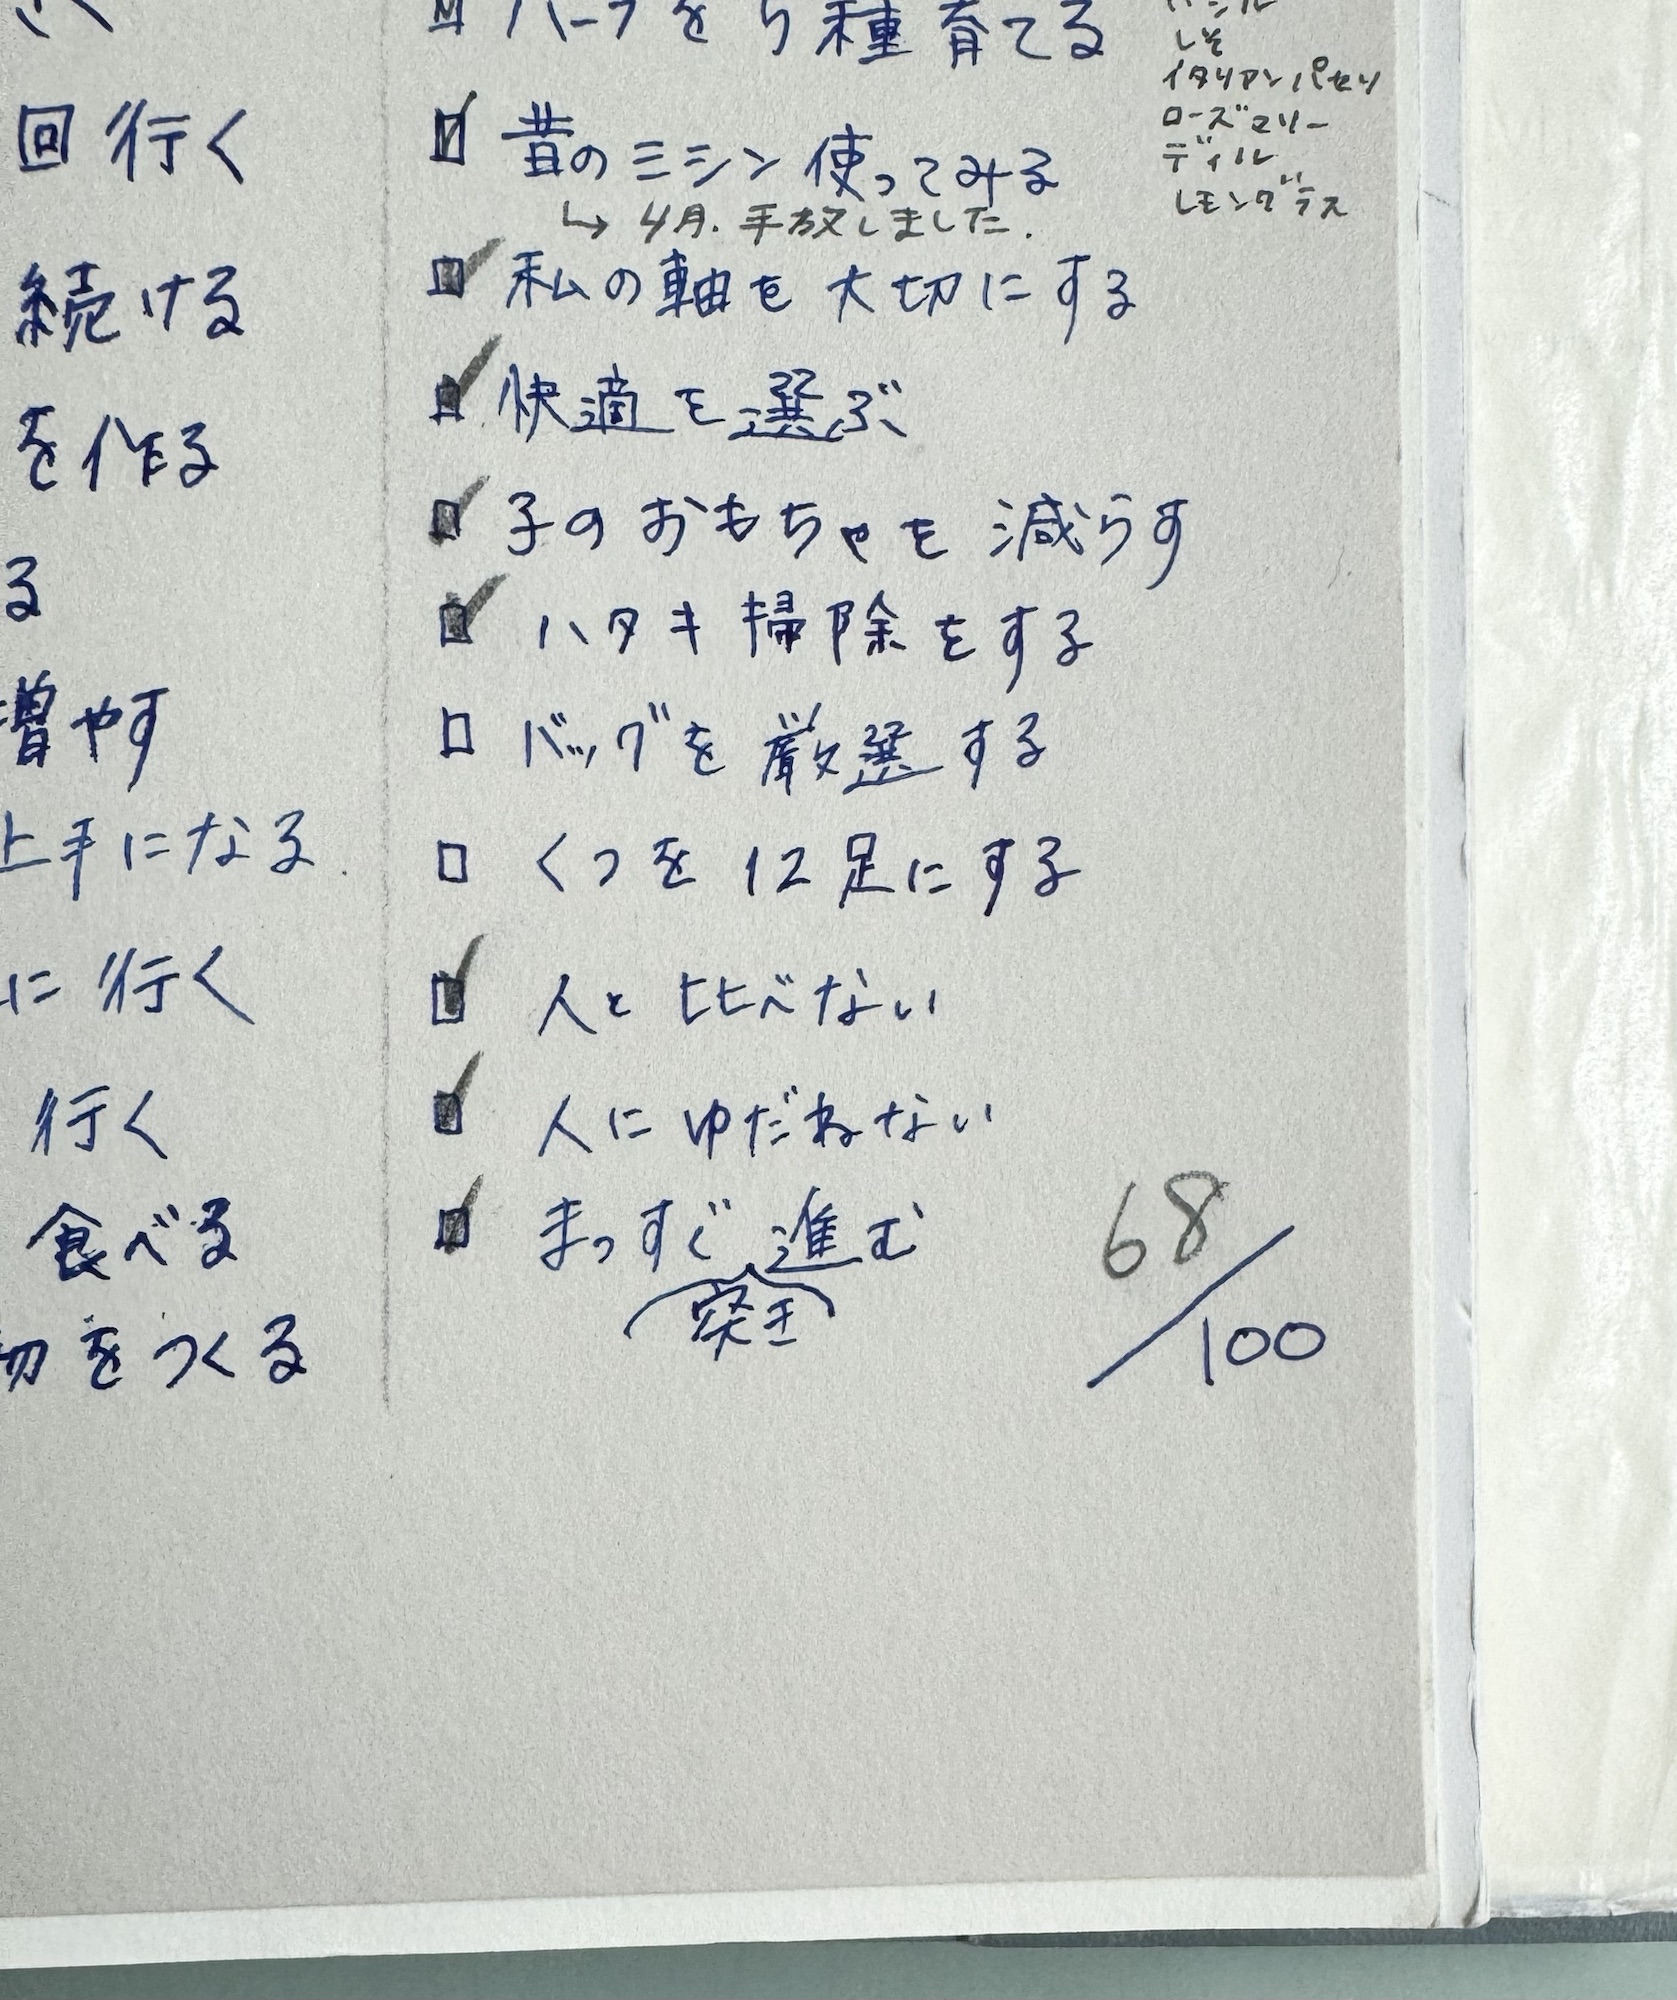 回行く
続ける
を作る
る
増やす
上手になる.
に行く
行く
食べる
をつくる
ハーブを5種育てる
しそ
イタリアンパセリ
ローズマリー
ディル
レモングラス
昔のミシン使ってみる
↳ 4月. 手放しました.
私の軸を大切にする
快適を選ぶ
子のおもちゃを減らす
ハタキ掃除をする
バッグを厳選する
くつを12足にする
人と比べない
人にゆだねない
まっすぐ進む
突き
68/100